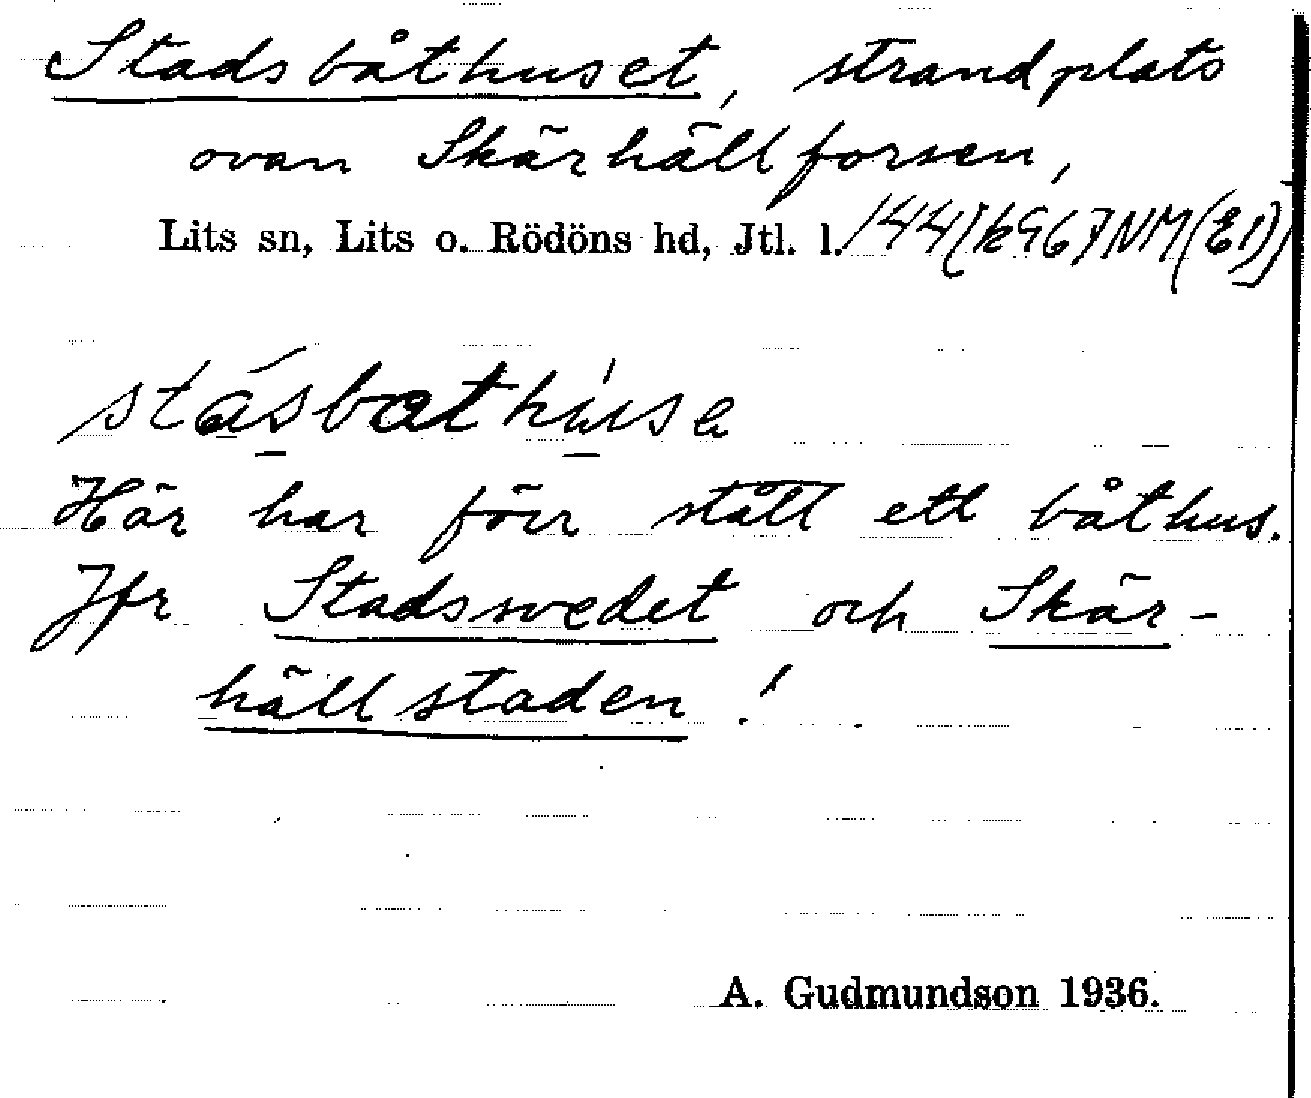 Stadsbåthuset, strandplats
ovan Skärhällforsen,
Lits sn, Lits o. Rödöns hd, Jtl. l.
stásbathúsa
Här har förr stått ett båthus.
Jfr Stadssvedet och Skär-
hällstaden!
A. Gudmundson 1936.